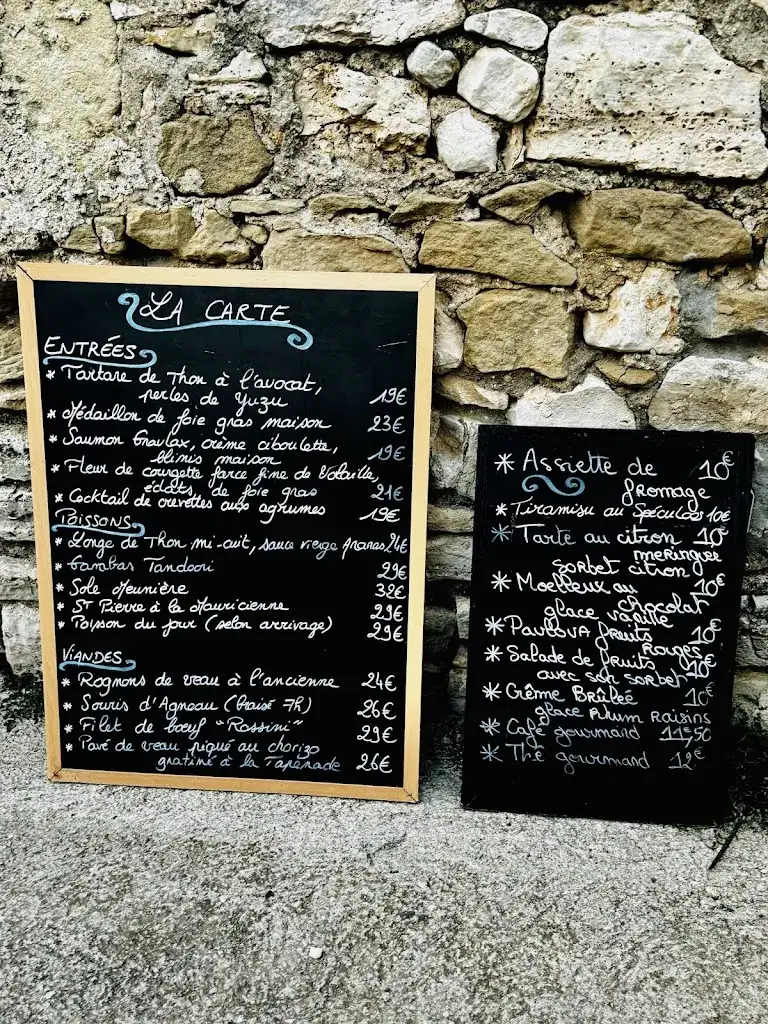 LA CARTE
ENTRÉES
* Tartare de Thon à l'avocat,
perles de Yuzu 19€
* Médaillon de foie gras maison 23€
* Saumon Gravlax, crème ciboulette,
blinis maison 19€
* Fleur de courgette farce fine de Volaille,
éclats de foie gras 21€
* Cocktail de crevettes aux agrumes 19€
POISSONS
* Longe de Thon mi-cuit, sauce vierge Ananas 24€
* Gambas Tandoori 29€
* Sole Meunière 32€
* St Pierre à la Mauricienne 29€
* Poisson du jour (selon arrivage) 29€
VIANDES
* Rognons de veau à l'ancienne 24€
* Souris d'Agneau (braisé 7h) 26€
* Filet de bœuf "Rossini" 29€
* Pavé de veau piqué au chorizo
gratiné à la Tapenade 26€
* Assiette de 10€
fromage
* Tiramisu au Spéculoos 10€
* Tarte au citron 10€
meringuée
sorbet citron
* Moelleux au 10€
chocolat
glace vanille
* PavLOVA fruits 10€
Rouges
* Salade de fruits 10€
avec son sorbet
* Crême Brûleé 10€
glace Rhum Raisins
* Café gourmand 11,50
* Thé gourmand 12€